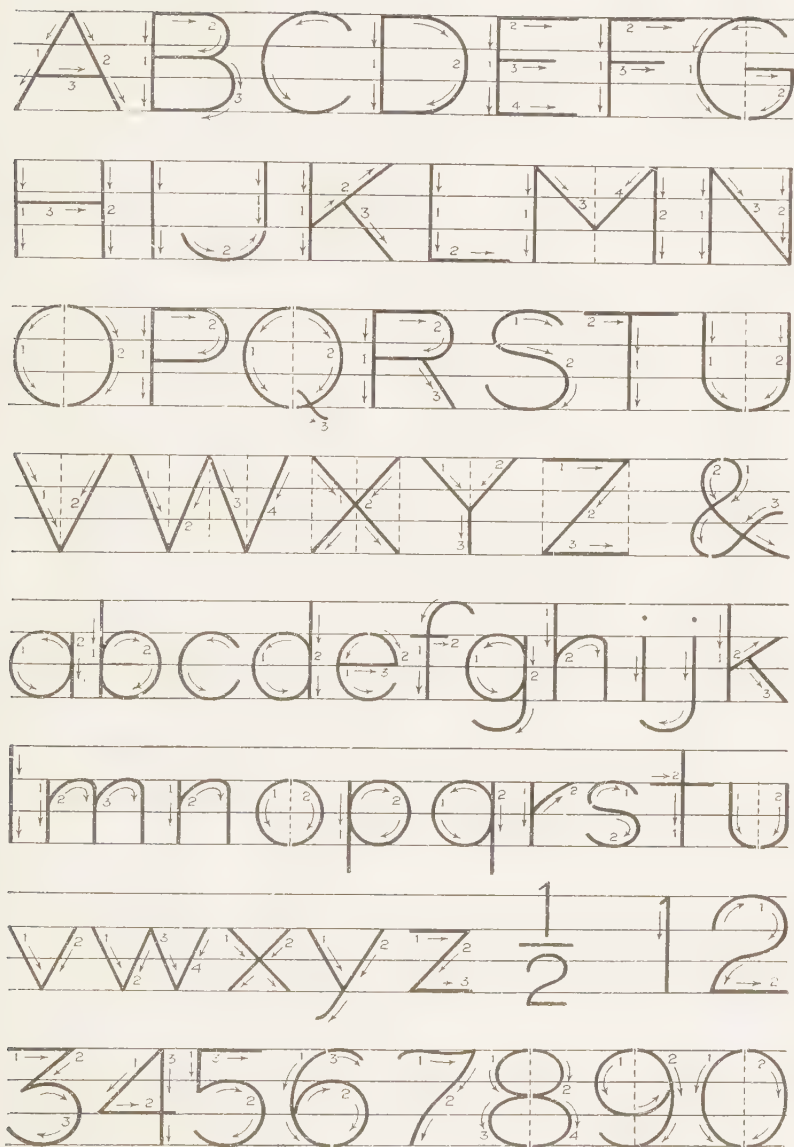 ABCDEFG
HIJKLMN
OPQRSTU
VWXYZ &
abcdefghijk
lmnopqrstu
vwxyz 1/2 1 2
34567890